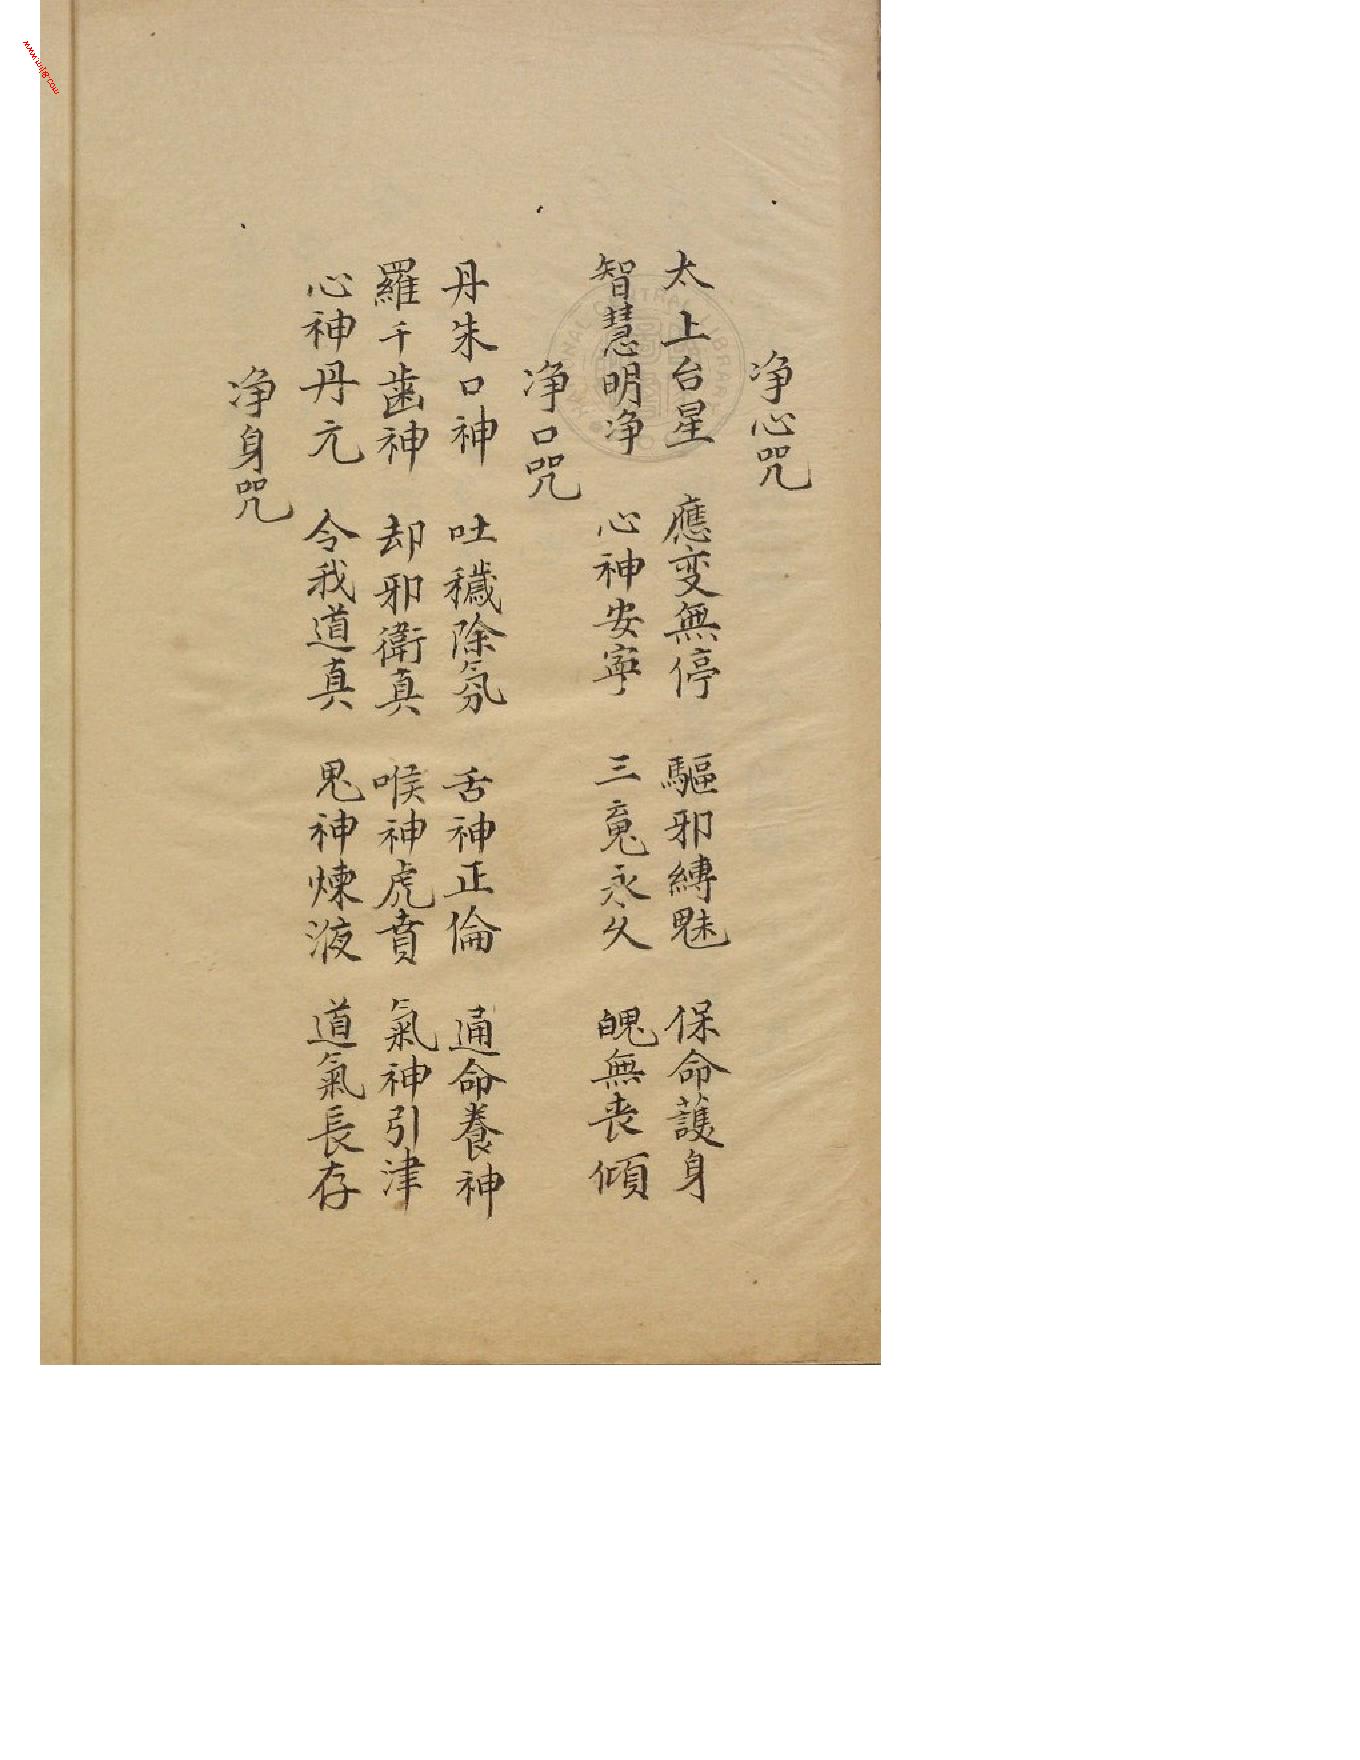 净心咒
太上台星 應变無停 驅邪縛魅 保命護身
智慧明净 心神安寧 三䰟永久 魄無丧傾
净口咒
丹朱口神 吐穢除氛 舌神正倫 通命養神
羅千齒神 却邪衛真 喉神虎賁 氣神引津
心神丹元 令我道真 鬼神煉液 道氣長存
净身咒